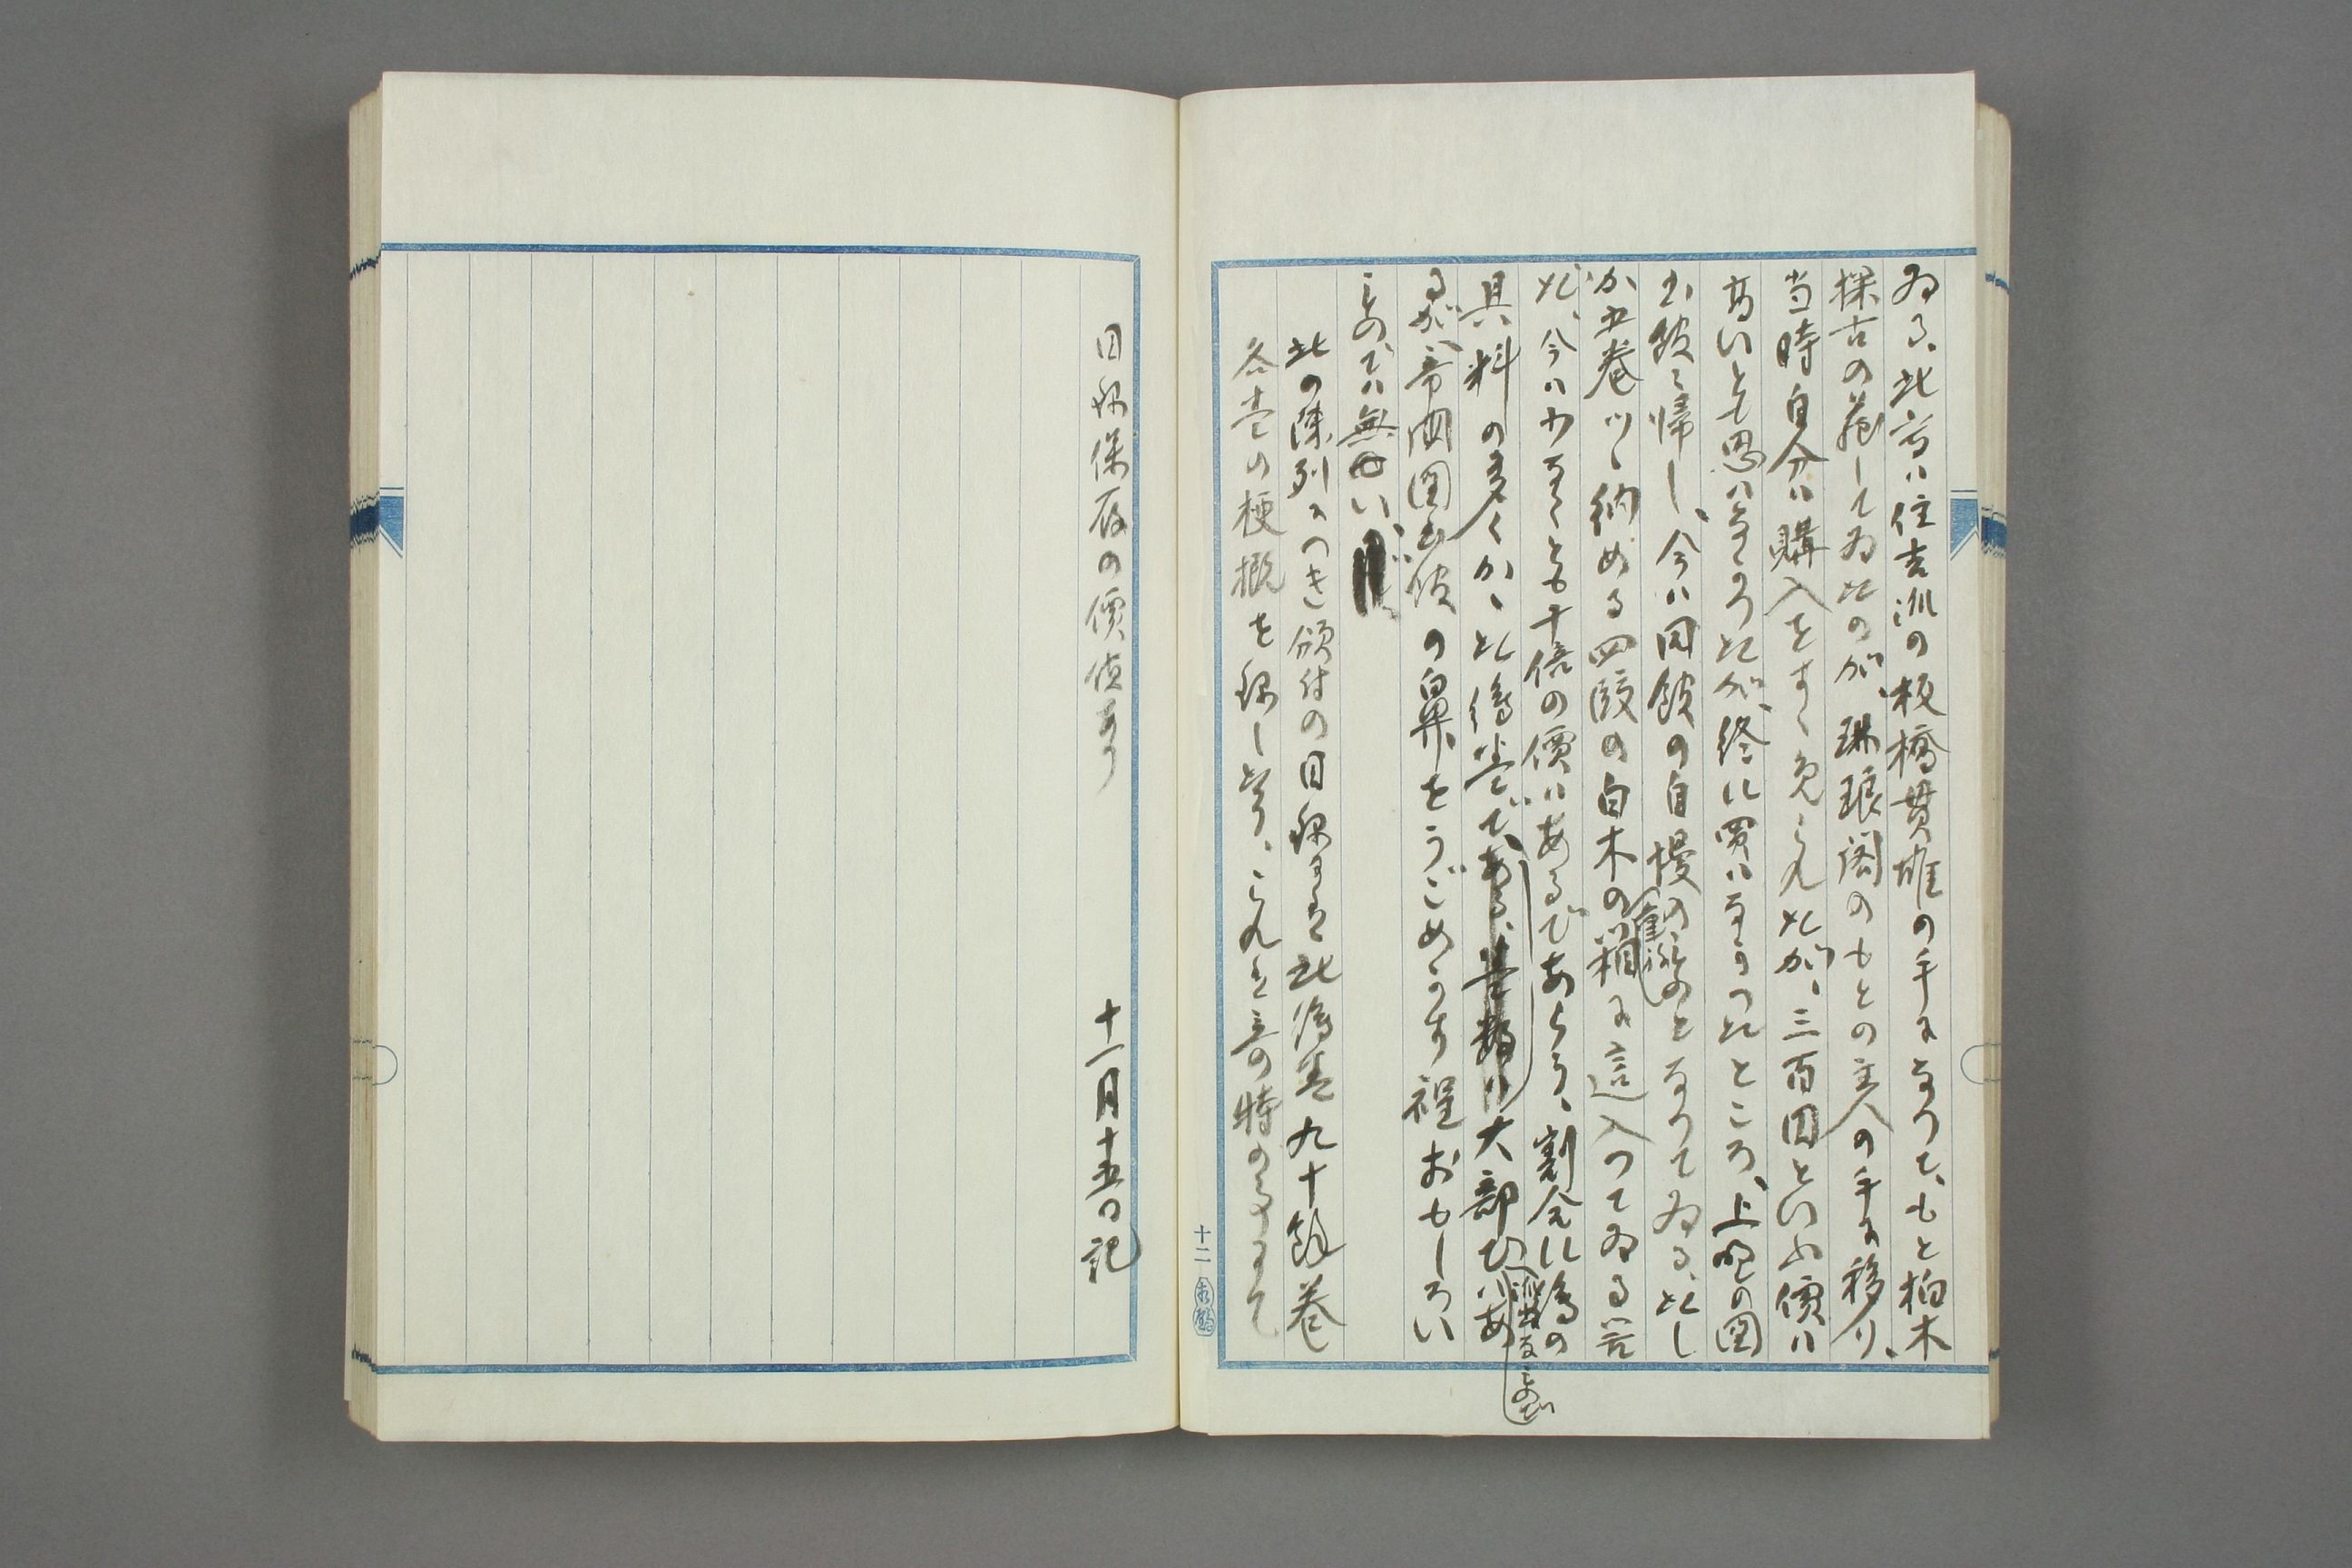 ゐる、此書ハ住吉派の板橋貫雄の手になつて、もと柏木
探古の蔵してゐたのが、琳琅閣のもとの主人の手に移り、
当時自分ハ購入をすゝめられたが、三百円といふ價ハ
高いとも思ハなかつたが、終に買ハなかつたところ、上野の図
書館に帰し、今ハ同館の自慢のものとなつてゐる、たし
か五巻ツゝ納める四段の白木の箱に這入つてゐる筈
だ、今ハ少なくとも十倍の價ハあるであらう、割合に絵の
具料の多くかゝた絵巻である、巻数ハ大部でハあ
るが、帝国図書館の鼻をうごめかす程おもしろい
ものでハ無い、
此の陳列につき頒付の目録にハ此絵巻九十餘巻
各巻の梗概を録しあり、これハ立の特のものにして
目録保存の價値あり
十一月十五日記
十二